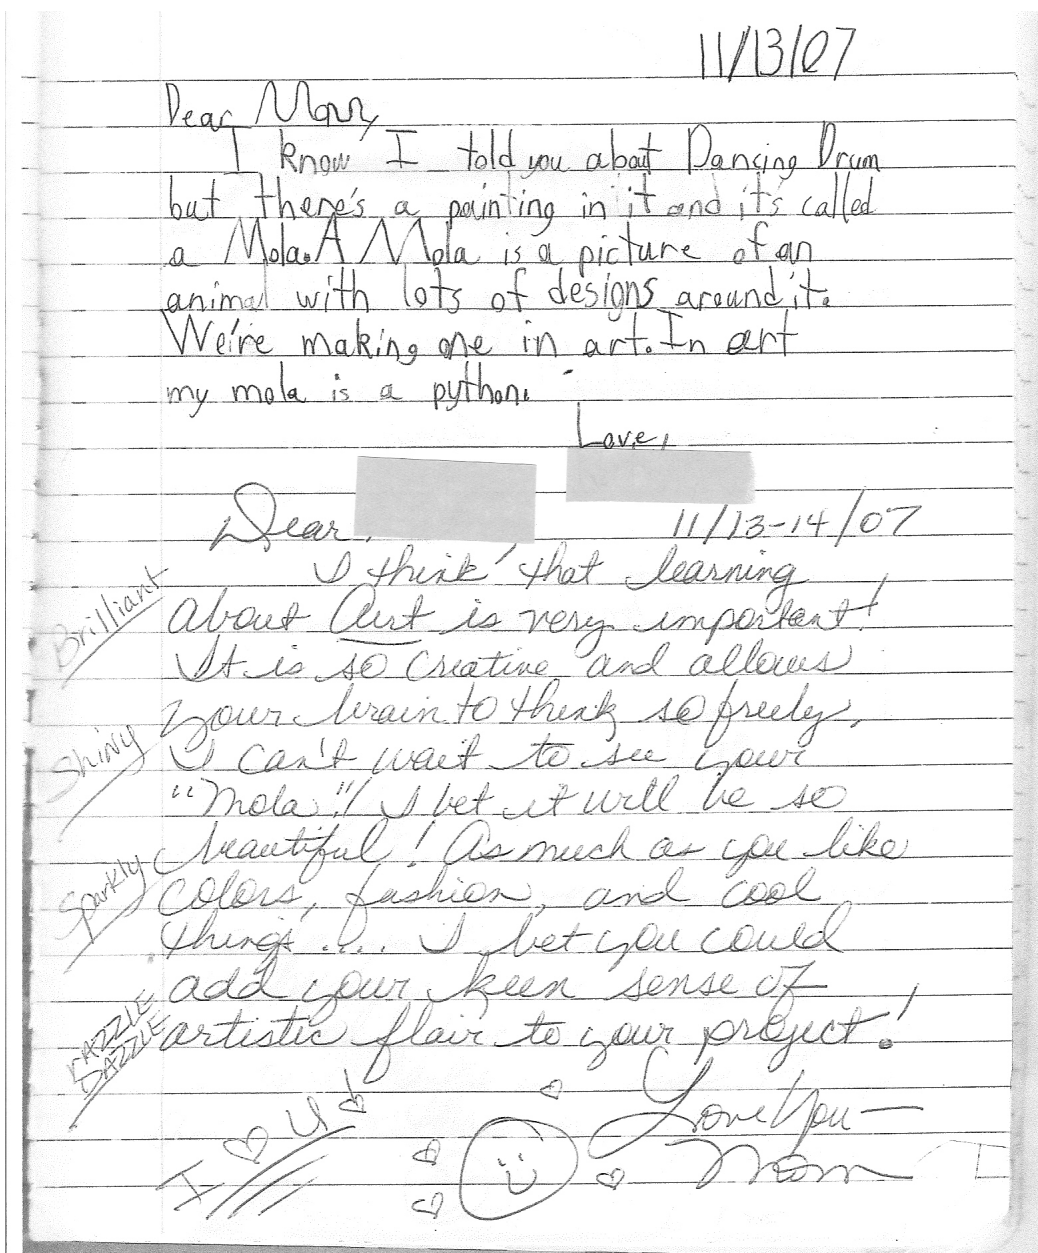 11/13/07
Dear Mom,
I know I told you about Dancing Drum
but there's a painting in it and it's called
a Mola. A Mola is a picture of an
animal with lots of designs around it.
We're making one in art. In art
my mola is a python.
Love,
Dear
11/13-14/07
I think that learning
about Art is very important!
It is so creative and allows
your brain to think so freely.
I can't wait to see your
"Mola"! I bet it will be so
beautiful! As much as you like
colors, fashion, and cool
things.... I bet you could
add your keen sense of
artistic flair to your project!
Love You—
Mom
Brilliant
Shiny
Sparkly
RAZZLE
DAZZLE
I ♡ U!